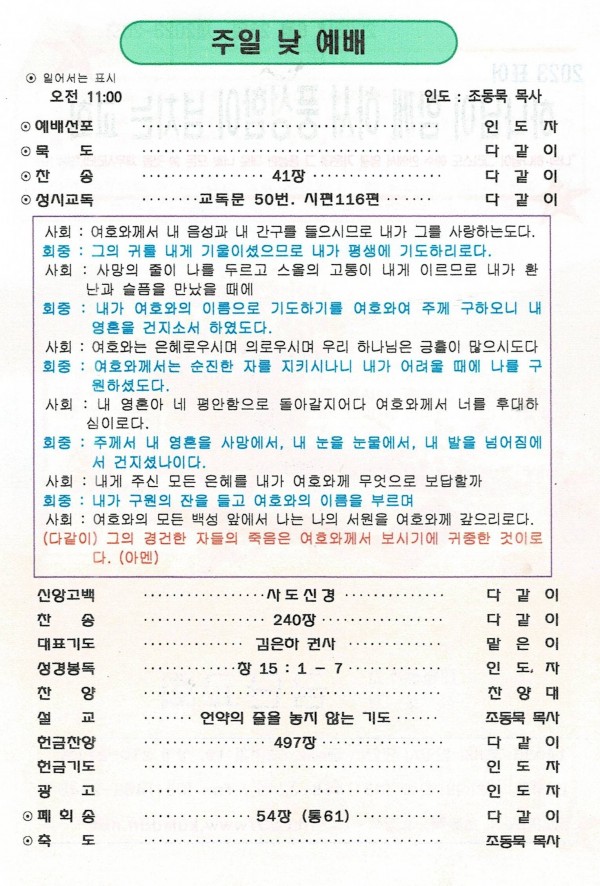 주일 낮 예배
⊙ 일어서는 표시
오전 11:00 인도 : 조동묵 목사
⊙예배선포 ································ 인 도 자
⊙묵 도 ································ 다 같 이
⊙찬 송 ··············· 41장 ··············· 다 같 이
⊙성시교독 ········교독문 50번. 시편116편 ·· ···· 다 같 이
사회 : 여호와께서 내 음성과 내 간구를 들으시므로 내가 그를 사랑하는도다.
회중 : 그의 귀를 내게 기울이셨으므로 내가 평생에 기도하리로다.
사회 : 사망의 줄이 나를 두르고 스올의 고통이 내게 이르므로 내가 환
난과 슬픔을 만났을 때에
회중 : 내가 여호와의 이름으로 기도하기를 여호와여 주께 구하오니 내
영혼을 건지소서 하였도다.
사회 : 여호와는 은혜로우시며 의로우시며 우리 하나님은 긍휼이 많으시도다
회중 : 여호와께서는 순진한 자를 지키시나니 내가 어려울 때에 나를 구
원하셨도다.
사회 : 내 영혼아 네 평안함으로 돌아갈지어다 여호와께서 너를 후대하
심이로다.
회중 : 주께서 내 영혼을 사망에서, 내 눈을 눈물에서, 내 발을 넘어짐에
서 건지셨나이다.
사회 : 내게 주신 모든 은혜를 내가 여호와께 무엇으로 보답할까
회중 : 내가 구원의 잔을 들고 여호와의 이름을 부르며
사회 : 여호와의 모든 백성 앞에서 나는 나의 서원을 여호와께 갚으리로다.
(다같이) 그의 경건한 자들의 죽음은 여호와께서 보시기에 귀중한 것이로
다. (아멘)
신앙고백 ···············사도신경 ··············· 다 같 이
찬 송 ··············· 240장 ··············· 다 같 이
대표기도 ··············· 김은하 권사 ··············· 맡 은 이
성경봉독 ···············창 15 : 1 - 7 ··············· 인 도 자
찬 양 ································ 찬 양 대
설 교 ······· 언약의 줄을 놓지 않는 기도 ······ 조동묵 목사
헌금찬양 ··············· 497장 ··············· 다 같 이
헌금기도 ································ 인 도 자
광 고 ································ 인 도 자
⊙폐 회 송 ··············· 54장 (통61) ··············· 다 같 이
⊙축 도 ································ 조동묵 목사